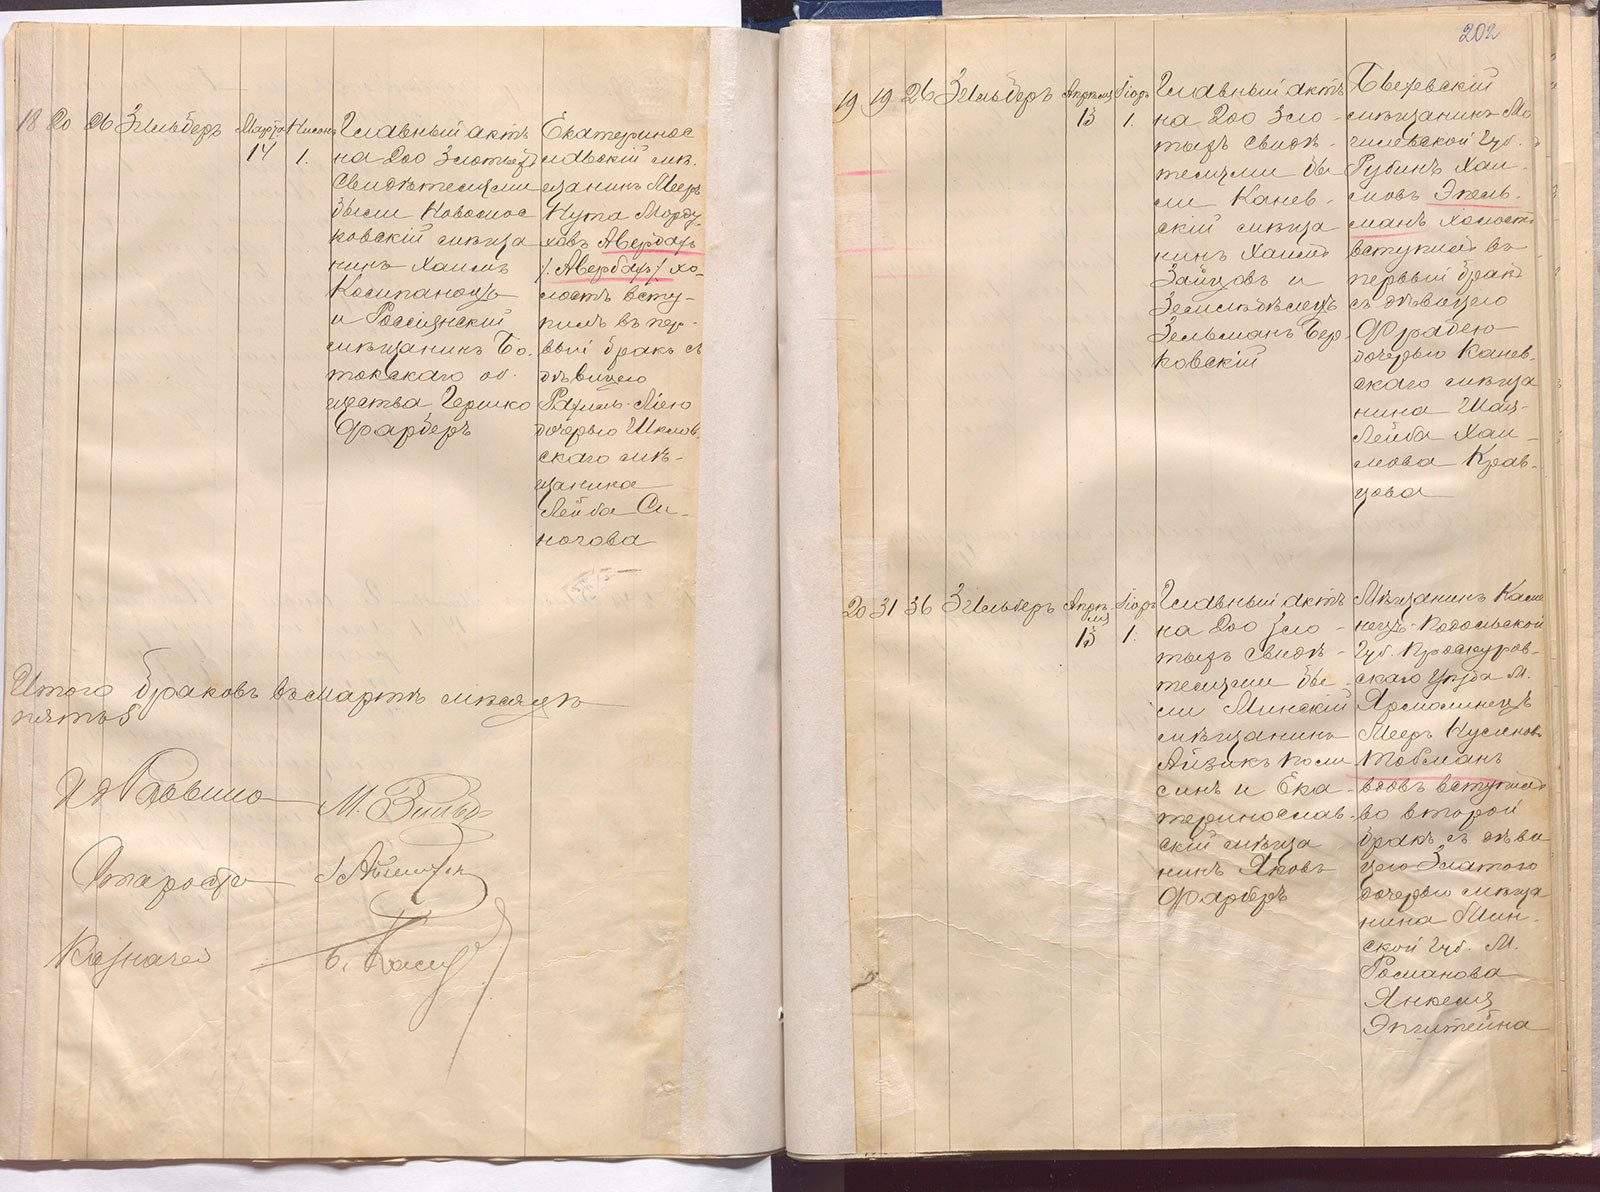 18 20 26 Зильберъ Марта 14 Нисонъ 1.
Главный актъ
на 200 злотыхъ
свидѣтелями
были Новомос
ковскій мѣща
нинъ Хаимъ
и Россіянскій
мѣщанинъ Бо.
токскаго об.
щества Гершко
Фарберъ
Екатеринос
лавскій мѣ.
щанинъ Мееръ
Кута Морду.
ховъ Авербахъ
/Авербахъ/ хо_
лостъ всту_
пилъ въ пер_
вый бракъ съ
дѣвицею
Рахиль-Лією
дочерью Шклов.
скаго мѣ_
щанина
Лейба Си_
ногова
Итого браковъ въ мартѣ мѣсяцѣ
пять 5
И д Раввина
Староста
Казначей
202
19 19 26 Зильберъ Апрѣля 13 Іоръ 1.
Главный актъ
на 200 зло_
тыхъ свидѣ_
телями бы
ли Канев_
скій мѣща
нинъ Хаимъ
Зайцовъ и
Земледѣлецъ
Зельманъ Бер_
ковскій
мѣщанинъ Мо
гилевской Губ.
Рубинъ Хаи_
мовъ Эпель_
манъ холостъ
вступилъ въ
первый бракъ
съ дѣвицею
Фрадею
дочерью Канев_
скаго мѣща
нина Шая_
Лейба Хаи_
мова Крав_
цова
20 31 36 Зильберъ Апрѣ
ля 13 Іоръ 1.
Главный актъ
на 200 зло_
тыхъ свидѣ_
телями бы_
ли Минскій
мѣщанинъ
Айзикъ
и Ека_
теринослав_
скій мѣща
нинъ Яковъ
Фарберъ
Мѣщанинъ Каме
нецъ-Подольской
Губ. Проскуров_
скаго уѣзда М.
Ярмолинецъ
Мееръ Нусиновъ
Товманъ
вдовъ вступилъ
во второй
бракъ съ дѣви
цею Златою
дочерью мѣща
нина Мин_
ской Губ. М.
Романова
Янкеля
Эпштейна